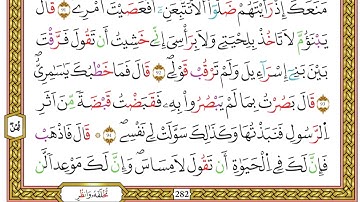 مَنَعَكَ إِذْ رَأَيْتَهُمْ ضَلُّوٓا أَلَّا تَتَّبِعَنِۦٓ أَفَعَصَيْتَ أَمْرِے قَالَ
يَبْنَؤُمَّ لَا تَأْخُذْ بِلِحْيَتِے وَلَا بِرَأْسِيَ إِنِّے خَشِيتُ أَن تَقُولَ فَرَّقْتَ
بَيْنَ بَنِےٓ إِسْرَآءِيلَ وَلَمْ تَرْقُبْ قَوْلِے قَالَ فَمَا خَطْبُكَ يَٰسَٰمِرِيُّ
قَالَ بَصُرْتُ بِمَا لَمْ يَبْصُرُوا بِهِۦ فَقَبَضْتُ قَبْضَةً مِّنَ اَثَرِ
اِ۬لرَّسُولِ فَنَبَذْتُهَا وَكَذَٰلِكَ سَوَّلَتْ لِے نَفْسِے قَالَ فَاذْهَبْ
ثُمُن
فَإِنَّ لَكَ فِے اِ۬لْحَيَوٰةِ أَن تَقُولَ لَا مِسَاسَ وَإِنَّ لَكَ مَوْعِداً لَّن
282